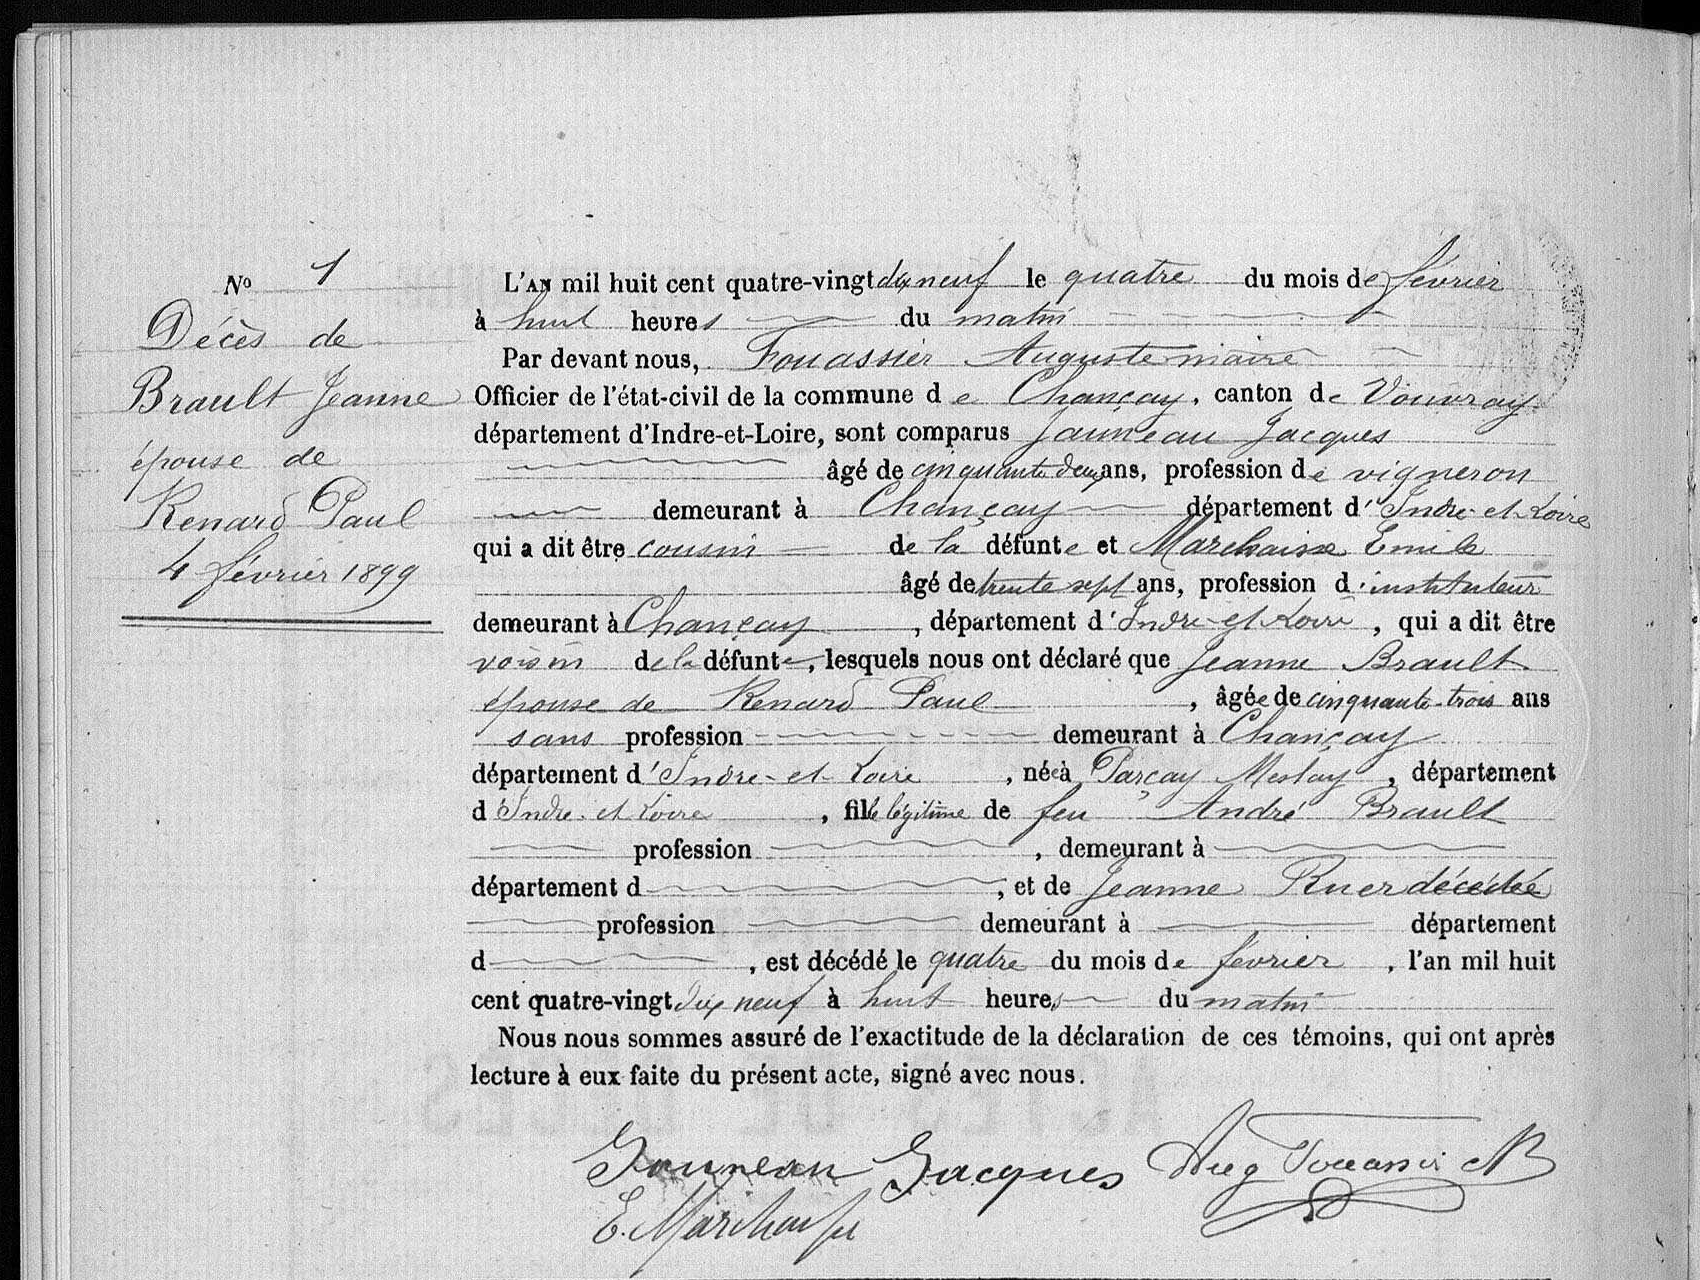 No 1
Décès de
Brault Jeanne
épouse de
Renard Paul
4 février 1899
L'AN mil huit cent quatre-vingt dix neuf le quatre du mois de février
à huit heures du matin
Par devant nous, Fouassier Auguste maire
Officier de l'état-civil de la commune de Chançay, canton de Vouvray
département d'Indre-et-Loire, sont comparus Jauneau Jacques
âgé de cinquante deux ans, profession de vigneron
demeurant à Chançay département d'Indre-et-Loire
qui a dit être cousin de la défunte et Marchaisse Emile
âgé de trente sept ans, profession d'instituteur
demeurant à Chançay, département d'Indre-et-Loire, qui a dit être
voisin de la défunte, lesquels nous ont déclaré que Jeanne Brault
épouse de Renard Paul, âgée de cinquante-trois ans
sans profession demeurant à Chançay
département d'Indre-et-Loire, née à Parçay Meslay, département
d'Indre et Loire, fille légitime de feu André Brault
profession, demeurant à
département d, et de Jeanne Ruer décédée
profession demeurant à département
d, est décédé le quatre du mois de février, l'an mil huit
cent quatre-vingt dix neuf à huit heures du matin
Nous nous sommes assuré de l'exactitude de la déclaration de ces témoins, qui ont après
lecture à eux faite du présent acte, signé avec nous.
Jauneau Jacques Aug Fouassier
E. Marchaisse